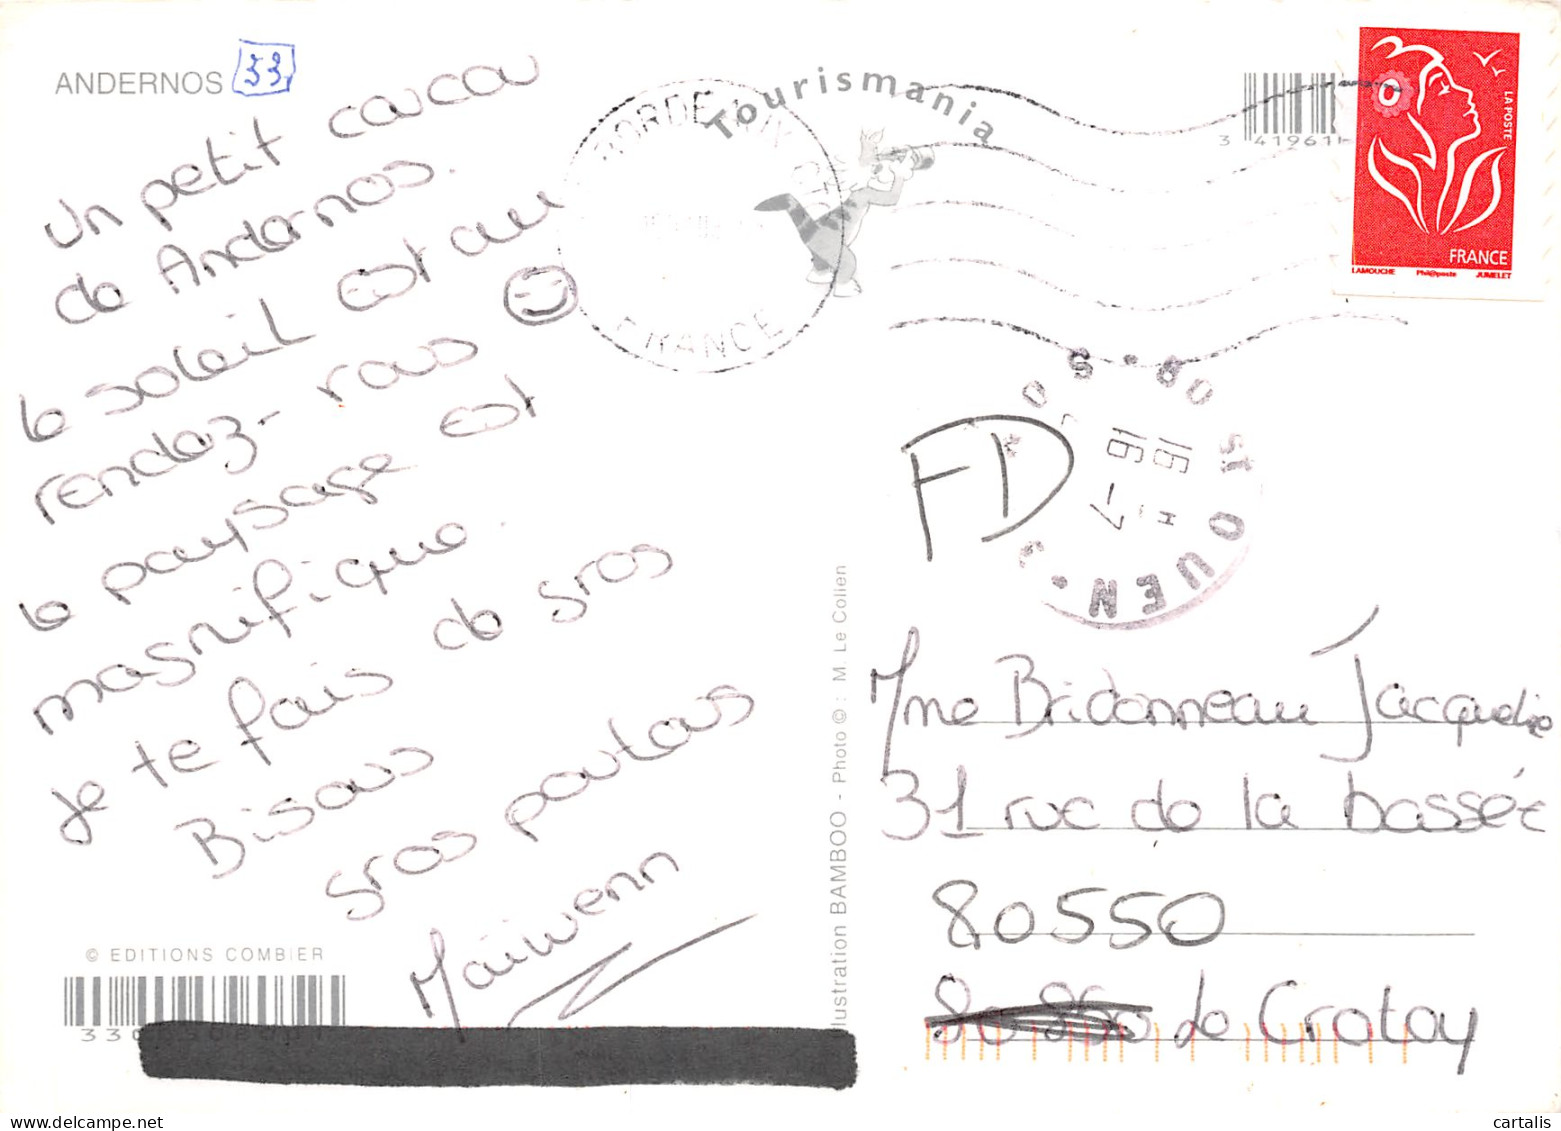 ANDERNOS 33
Un petit coucou
de Andernos.
le soleil est au
rendez-vous
le paysage est
magnifique.
je te fais de gros
Bisous
gros poutous
Maiwenn
© EDITIONS COMBIER
Illustration BAMBOO - Photo © : M. Le Collen
Tourismania
BORDEAUX
FRANCE
3 41961
LA POSTE
FRANCE
LAMOUCHE Phil@poste JUMELET
80 ST OUEN
16 H
16 - 7
FD
Mme Bridonneau Jacqueline
31 rue de la bassée
80550
le Crotoy